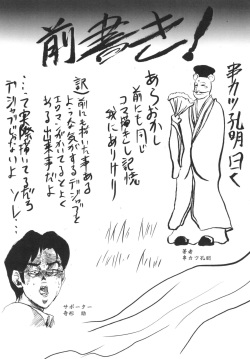 前書き!
串カツ孔明曰く
あらおかし
前にも同じ
コマ描きし記憶
我にありけり
訳)前にもおいた事ある
ような気がするデジャブと
エロマンガかいてるとよく
ある出来事だよ
…って実際描いてるだろ
デジャブじゃないよ ソレ…
著者
串カツ孔明
サポーター